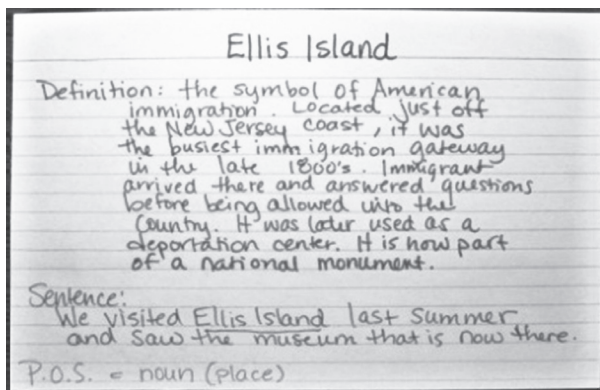 Ellis Island
Definition: the symbol of American
immigration. Located just off
the New Jersey coast, it was
the busiest immigration gateway
in the late 1800's. Immigrant
arrived there and answered questions
before being allowed into the
Country. It was later used as a
deportation center. It is now part
of a national monument.
Sentence:
We visited Ellis Island last summer
and saw the museum that is now there.
P.O.S. = noun (place)